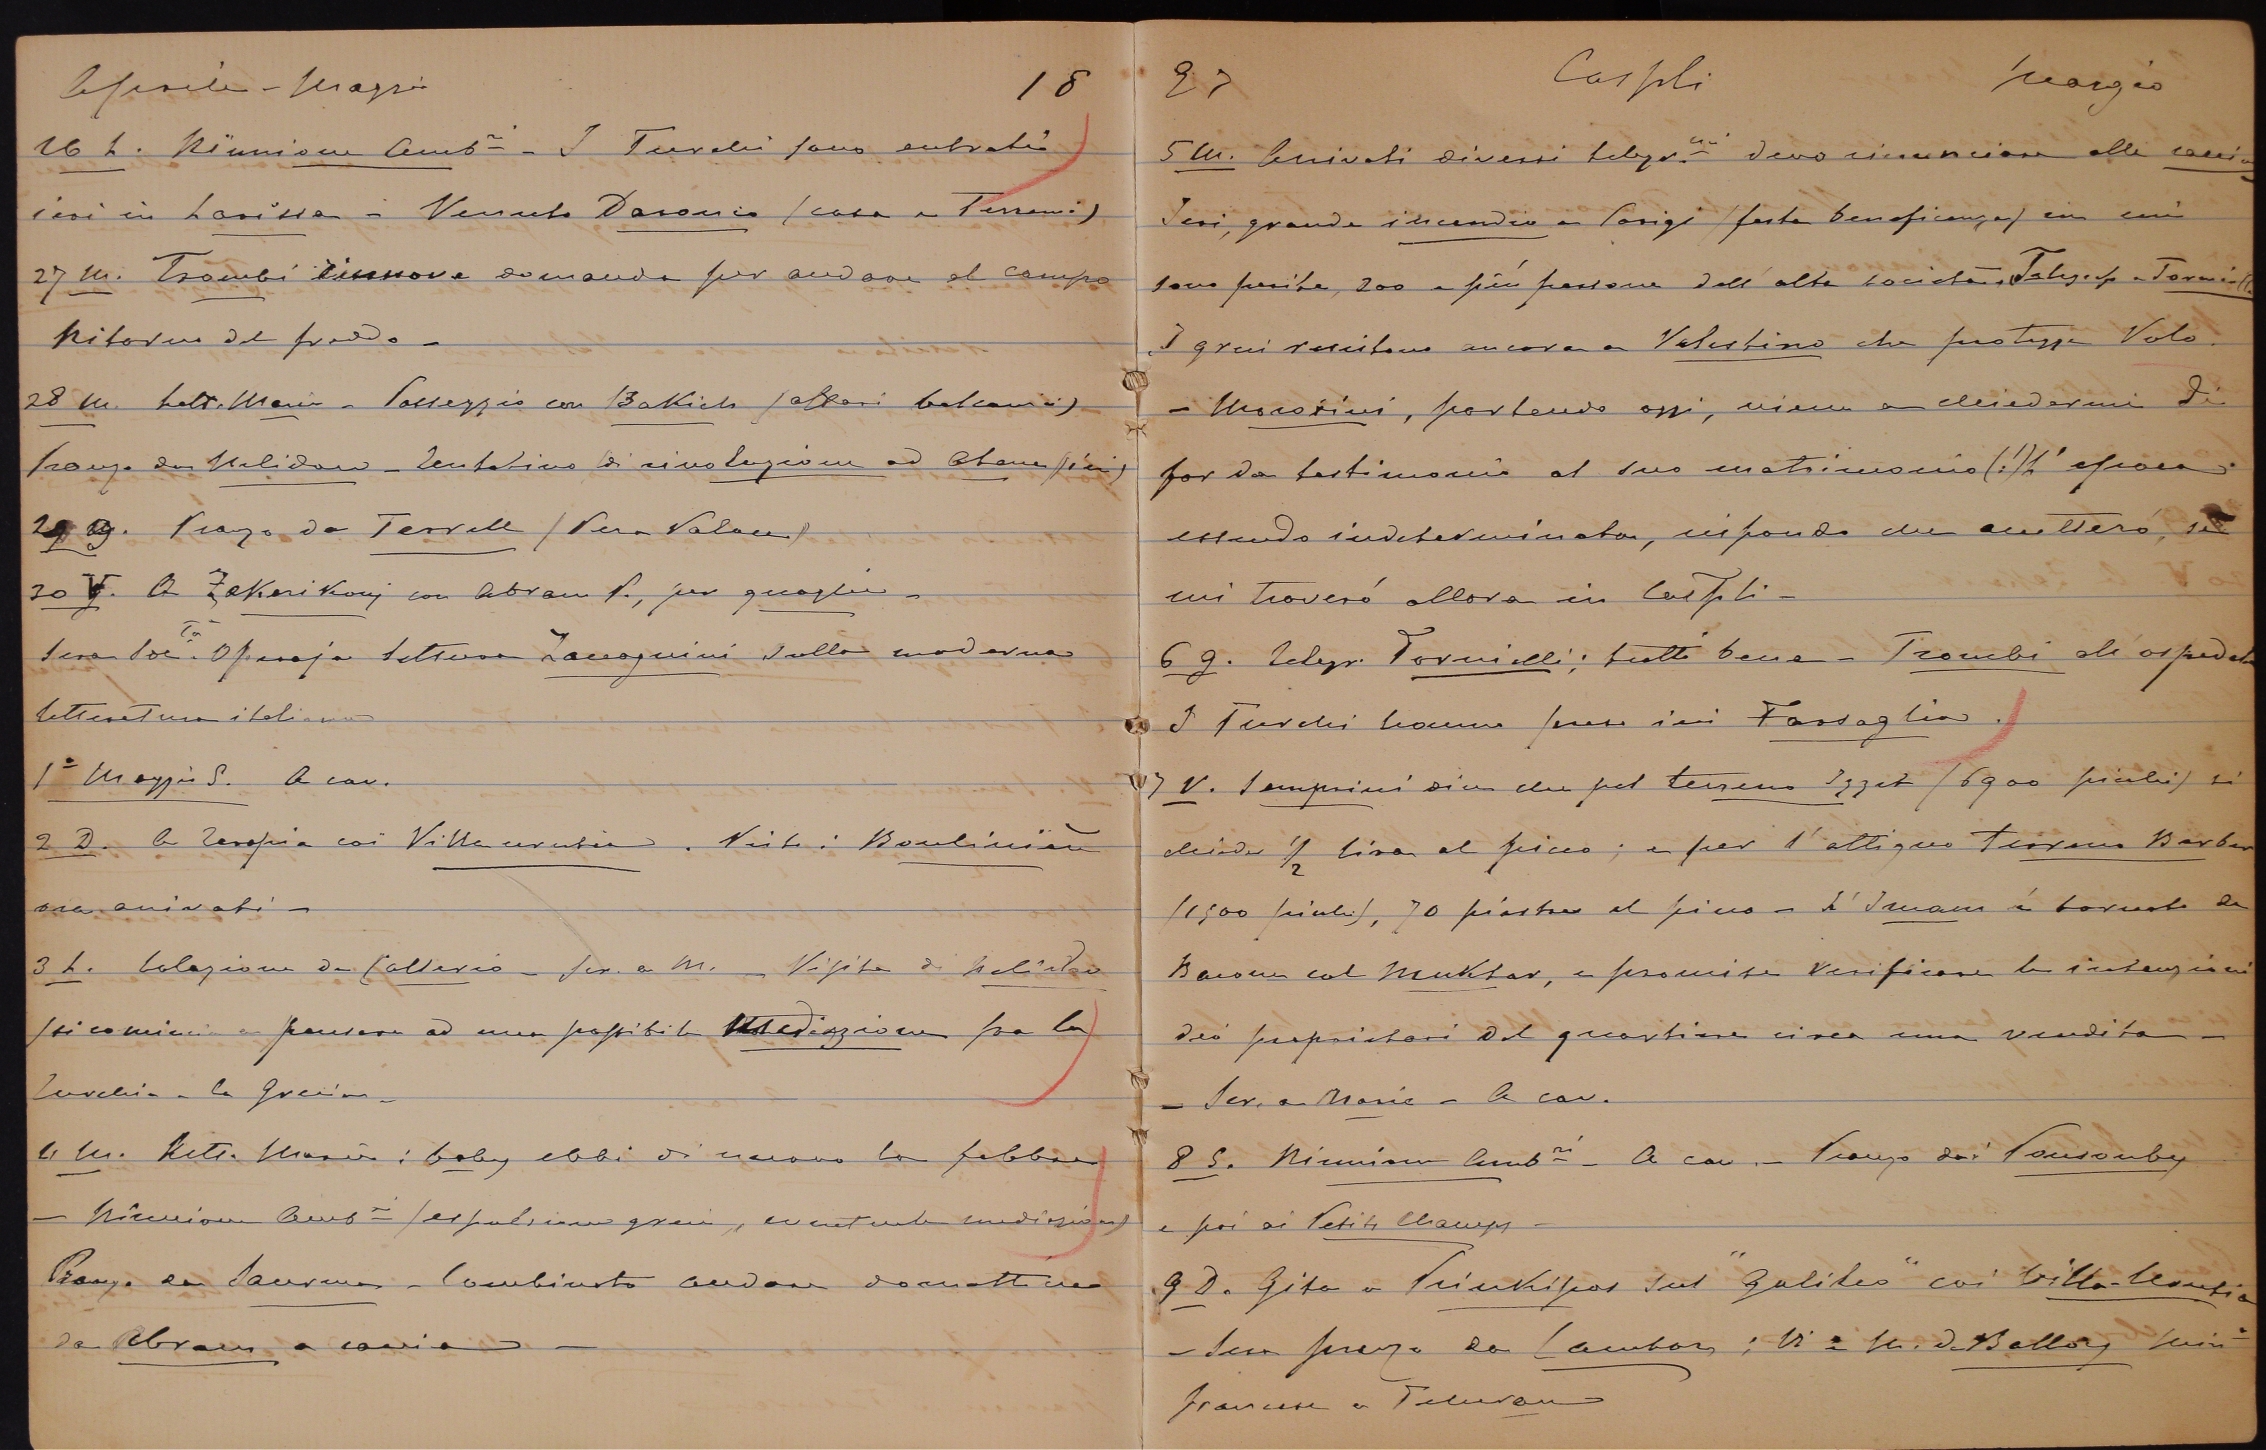 Aprile - Maggio 18
26 L. Riunione Amb.ri - I Turchi sono entrati
ieri in Larissa - Venuto Daronco (casa e Terreni)
27 M. Trombi rinnova domanda per andare al campo
Ritorno del freddo -
28 M. Lett. Maria - Passeggio con Bakich (affari balcanici)
Pranzo da Nelidow - Tentativo di rivoluzione ad Atene (ieri)
29 G. Pranzo da Terrell (Pera Palace)
30 V. A Zekerikouj con Abram P., per quaglie -
Sera Soc.tà Operaja lettura Zaccagnini sulla moderna
letteratura italiana
1° Maggio S. A cav.
2 D. A Terapia coi Villaurrutia. Visto i Boulinière
ora arrivati -
3 L. Colazione da - Scr. a M. - Visita di Nelidow
(si comincia a pensare ad una possibile Mediazione fra la
Turchia e la Grecia -
4 M. Lett. Maria: baby ebbe di nuovo la febbre
- Riunione Amb.ri (espulsione greci, eventuale mediazione)
Pranzo da Saurma - Combinato andare domattina
da Abram a caccia -
97 Caspli Maggio
5 M. Arrivati diversi telegr.mi devo rinunciare alla caccia
Ieri, grande incendio a Parigi (festa beneficenza) in cui
sono perite 200 e più persone dell'alta società. Telegrafo a Tornielli
I greci resistono ancora a Velestino che protegge Volo.
- Morosini, partendo oggi, viene a chiedermi di
far da testimonio al suo matrimonio (!) L'epoca
essendo indeterminata, rispondo che accetterò, se
mi troverò allora in Caspli -
6 G. Telegr. Tornielli; tutti bene - Trombi all'ospedale
I Turchi hanno preso ieri Farsaglia.
7 V. Semprini dice che pel terreno Izzet (6900 picchi) si
chiede 1/2 lira al picco; e per l'attiguo terreno Barker
(1500 picchi), 70 piastre al picco - L'Imam è tornato da
col Mukhtar, e promise verificare le intenzioni
dei proprietari del quartiere circa una vendita -
- Scr. a Maria - A cav.
8 S. Riunione Amb.ri - A cav. - Pranzo dai Ponsonby
e poi ai Petits Champs -
9 D. Gita a Prinkipos sul "Galileo" coi Villa-Urrutia
- Sera pranzo da Cambon; Vi è M. de Balloy Min.o
francese a Teheran